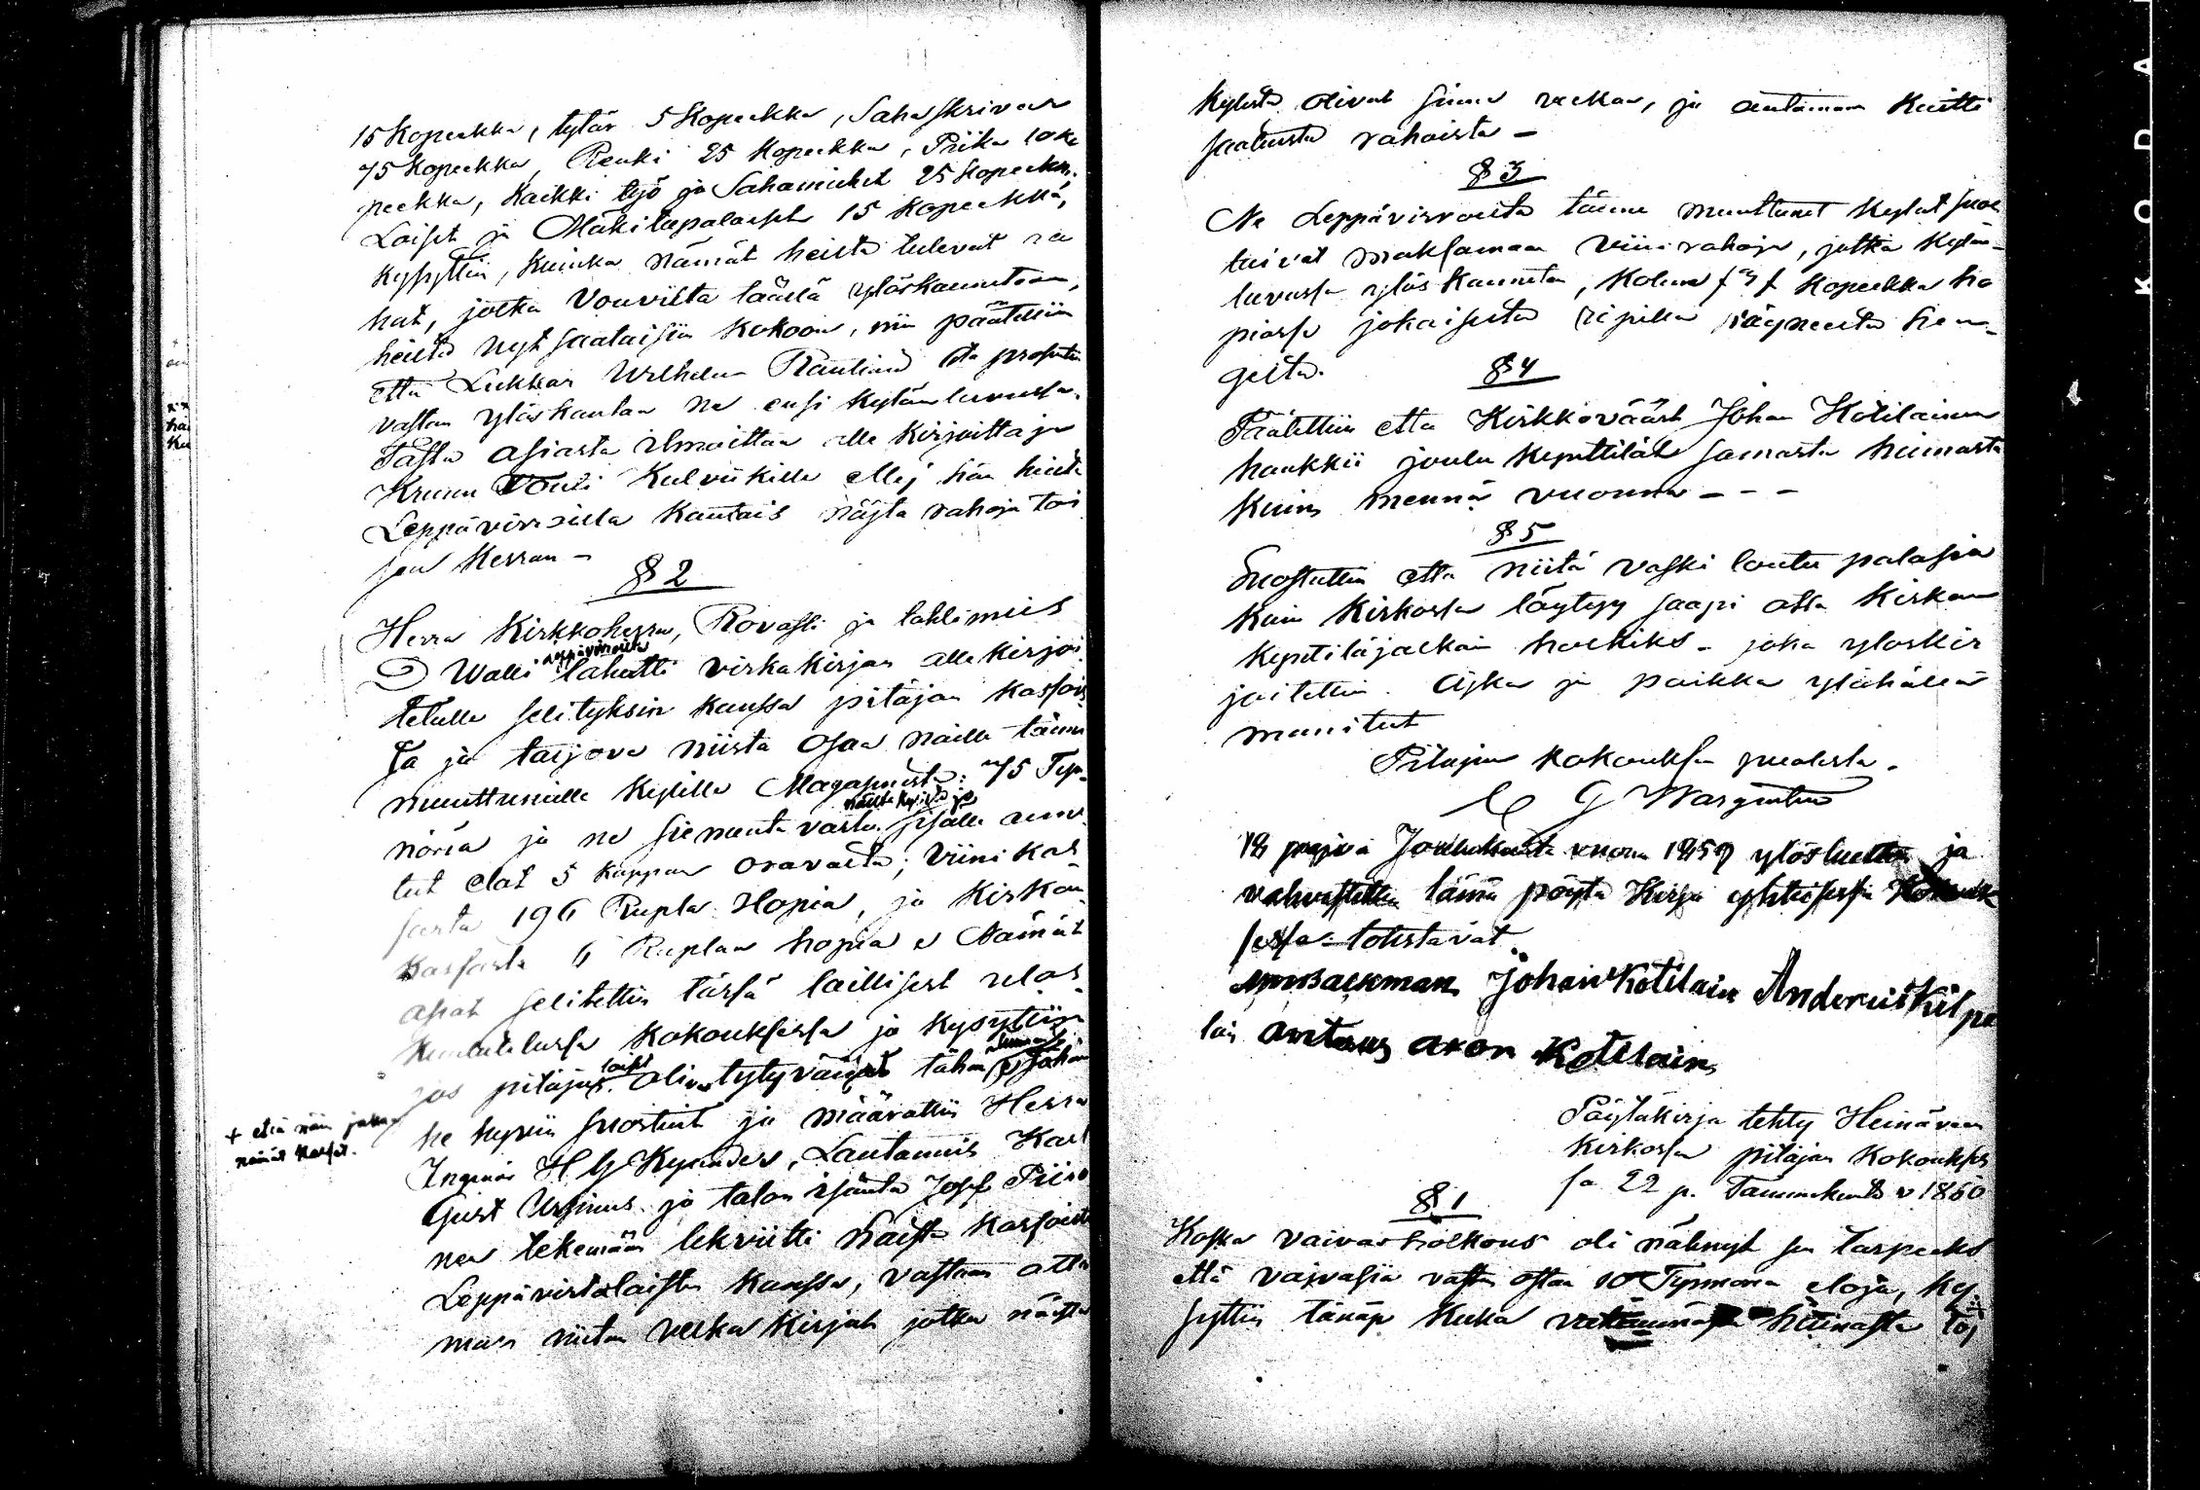 15 Kopeekka, tytär 5 Kopeekka, Sahaskrivar
75 Kopeekka, Renki 25 Kopeekka, Piika 10 Ko
peekka, Kaikki työ ja Sahamiehet 25 Kopeekka,
Loiset ja Mäkitupalaiset 15 Kopeekka,
kysyttiin, kuinka nämät heistä tulevat ra
hat, jotka Vouvilta läällä ylöskannetaan,
heiltä nyt saataisiin kokoon, niin päätettiin
että Lukkar Wilhelm Rautiaid
vastan ylöskantaa ne ensi kylänluvussa.
Tästä asiasta ilmoittaa alle kirjoittaja
Kruun Vouti Kulvikille ellej hän heistä
Leppävirroilla kantais näytä rahoja toi
sen kerran –
§ 2
Herra Kirkkoherra, Rovasti ja lahkomies
Walli lähätti virkakirjan alle kirjoi
tetulle selityksin kanssa pitäjän kassois
ta ja tarjova niistä osaa näille tänne
muuttuneille kylille Magasinista: 75 Tyn
nöriä ja ne siementä vasta näiltä kyliltä ja sisälle annetut
elot 5 kappaa oravalta; Viini kas
sasta 196 Rupla Hopia, ja Kirkon
kassasta 6 Ruplaa hopia Nämät
asiat selitettiin tässä laillisest ulos
kuulutetussa kokouksessa ja kysyttiin
jos pitäjän olivat tytyväiset tähän
+ että näin jakaa
nämät kassat.
he hyvin suostuit ja määrättiin Herra
Ingeniör H G Kyander, Lautamies Karl
Gust Ursinus ja talon isäntä Josef Piiro
nen tekemään lekviitti näistä kassoista
Leppävirtalaisten kanssa, vastaan otta
maan niitän velka kirjat jotka näiltä
kylistä olivat sinne velkaa, ja antamaan kuitti
saatuista rahoista –
§ 3
Ne Leppävirroilta tänne muuttanet kylät suos
tuivat maksamaan viinirahoja, jotka kylän
luvussa ylös kannetaan, kolme f 3 f kopeekka ho
piassa jokaiselta ripillä käyneestä hen
geltä.
§ 4
Päätettiin että Kirkkoväärt Johan Kotilainen
hankkii joulu kynttilät samasta hinnasta
kuin mennä vuonna – – –
§ 5
Suostuttiin että niitä vaski loutu palasia
kuin kirkossa löytyy saapi otta kirkon
kynttiläjalkain holkiks – joka yloskir
joitettiin. Ajka ja paikka yläällä
mainitut
Pitäjän kokouksen puolesta.
C G Wargentin
18 päjvä Joulukuuta vuona 1859 ylösluettu ja
vahvistettu tämä pöytä Kirja yhteisessä kokouk
sessa – totistavat
Johan Kotilain Anders Kilpe
läi antaus aron Kotilains
Pöytäkirja tehty Heinäveen
kirkossa pitäjän kokoukses
sa 22 p. Tammikuuta v 1860
§ 1
Koska vaivasholhous oli nähnyt sen tarpeeks
että vajvasia vasten ostaa 10 Tynnöriä eloja, ky
syttiin tänäp kuka hinnasta toj